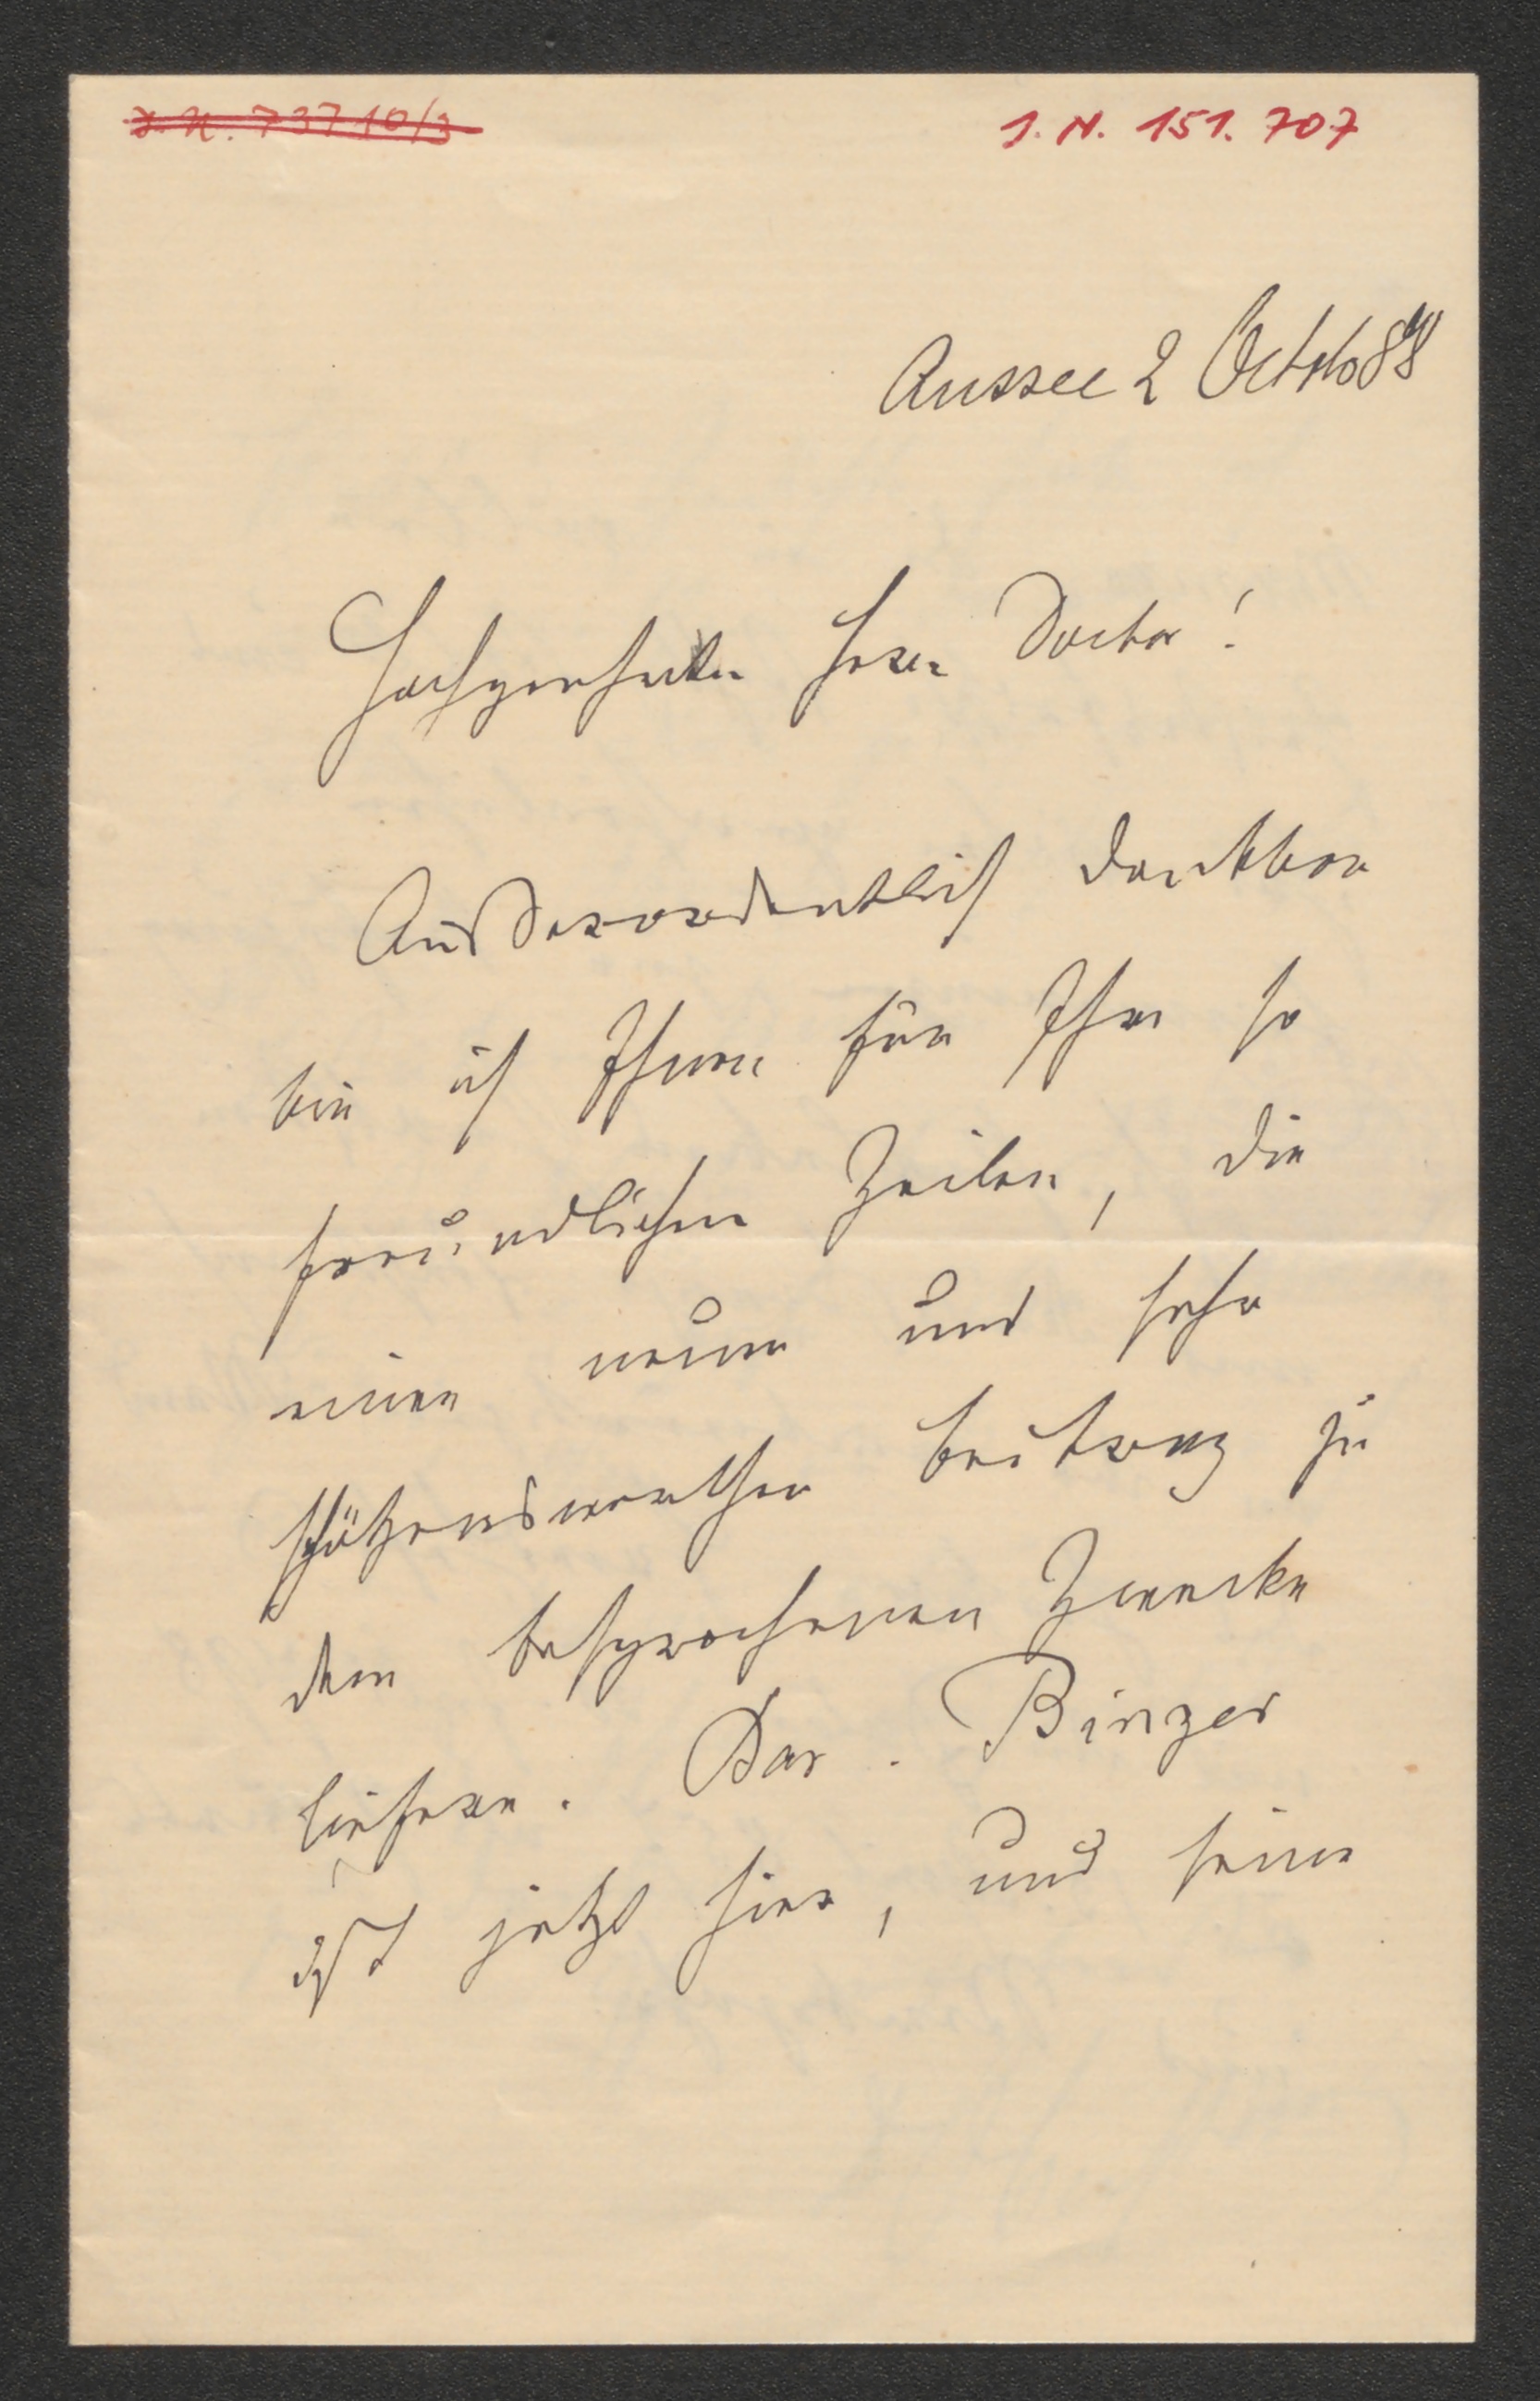 J. N. 73710/3
J. N. 151.707
Aussee 2 Octob 88
Hochgeehrter Herr Doctor!
Außerordentlich dankbar
bin ich Ihnen für Ihre so
freundlichen Zeilen, die
einen neuen und sehr
schätzenswerthen Beitrag zu
dem besprochenen Zwecke
liefern. Bar. Binzer
ist jetzt hier, und seine